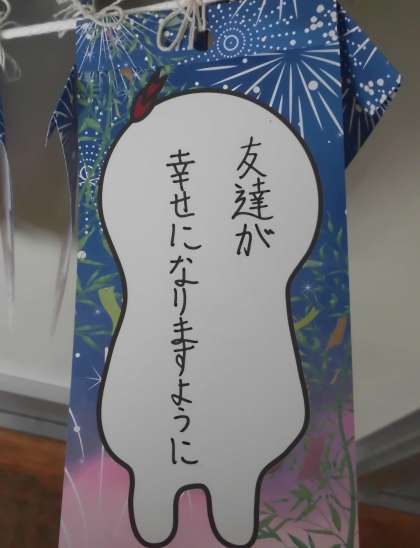 友達が
幸せになりますように